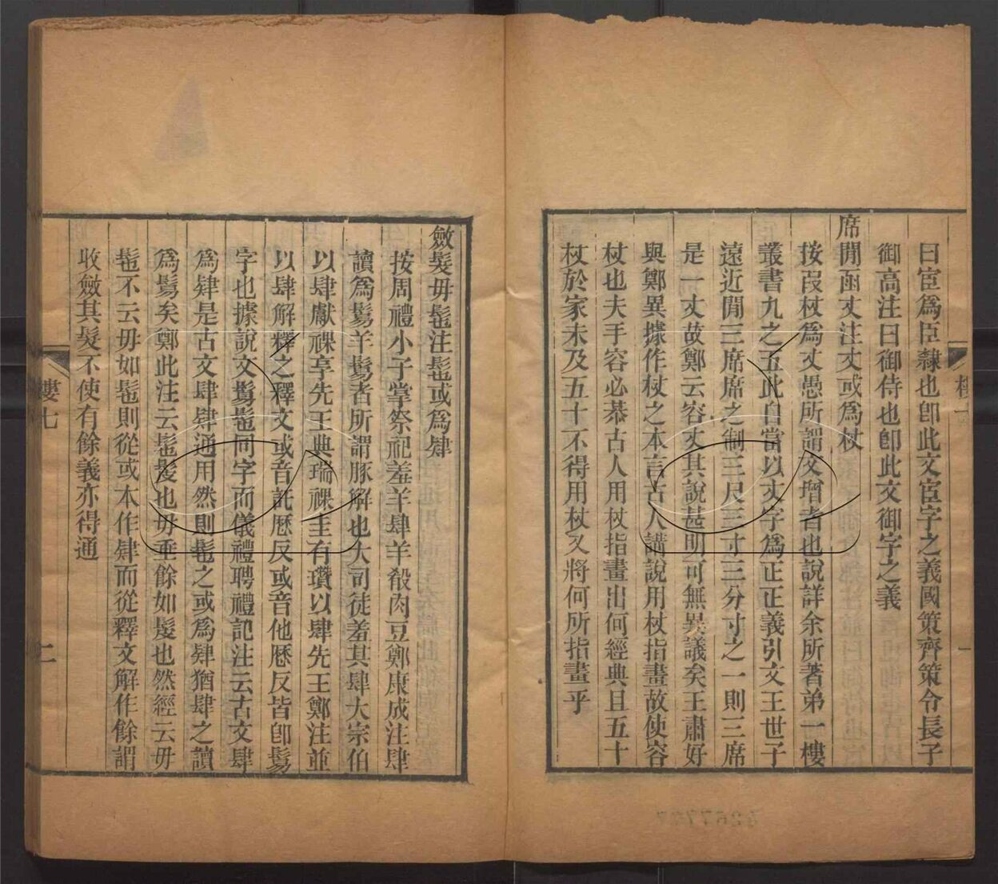 曰宦爲臣隸也卽此文宦字之義國策齊策令長子
御高注曰御侍也卽此文御字之義
席閒函丈注丈或爲杖
按叚杖爲丈愚所謂文增者也說詳余所著弟一樓
叢書九之五此自當以丈字爲正正義引文王世子
遠近閒三席席之制三尺三寸三分寸之一則三席
是一丈故鄭云容丈其說甚明可無異議矣王肅好
與鄭異據作杖之本言古人講說用杖指畫故使容
杖也夫手容必恭古人用杖指畫出何經典且五十
杖於家未及五十不得用杖又將何所指畫乎
斂髮毋髢注髢或爲肄
按周禮小子掌祭祀羞羊肆羊殽肉豆鄭康成注肆
讀爲鬄羊鬄者所謂豚解也大司徒羞其肆大宗伯
以肆獻祼享先王典瑞祼圭有瓚以肆先王鄭注並
以肆解釋之釋文或音託歷反或音他歷反皆卽鬄
字也據說文鬄髢同字而儀禮聘禮記注云古文肆
爲肄是古文肆肄通用然則髢之或爲肄猶肆之讀
爲鬄矣鄭此注云髢髲也毋垂餘如髲也然經云毋
髢不云毋如髢則從或本作肄而從釋文解作餘謂
收斂其髮不使有餘義亦得通
樓七
二